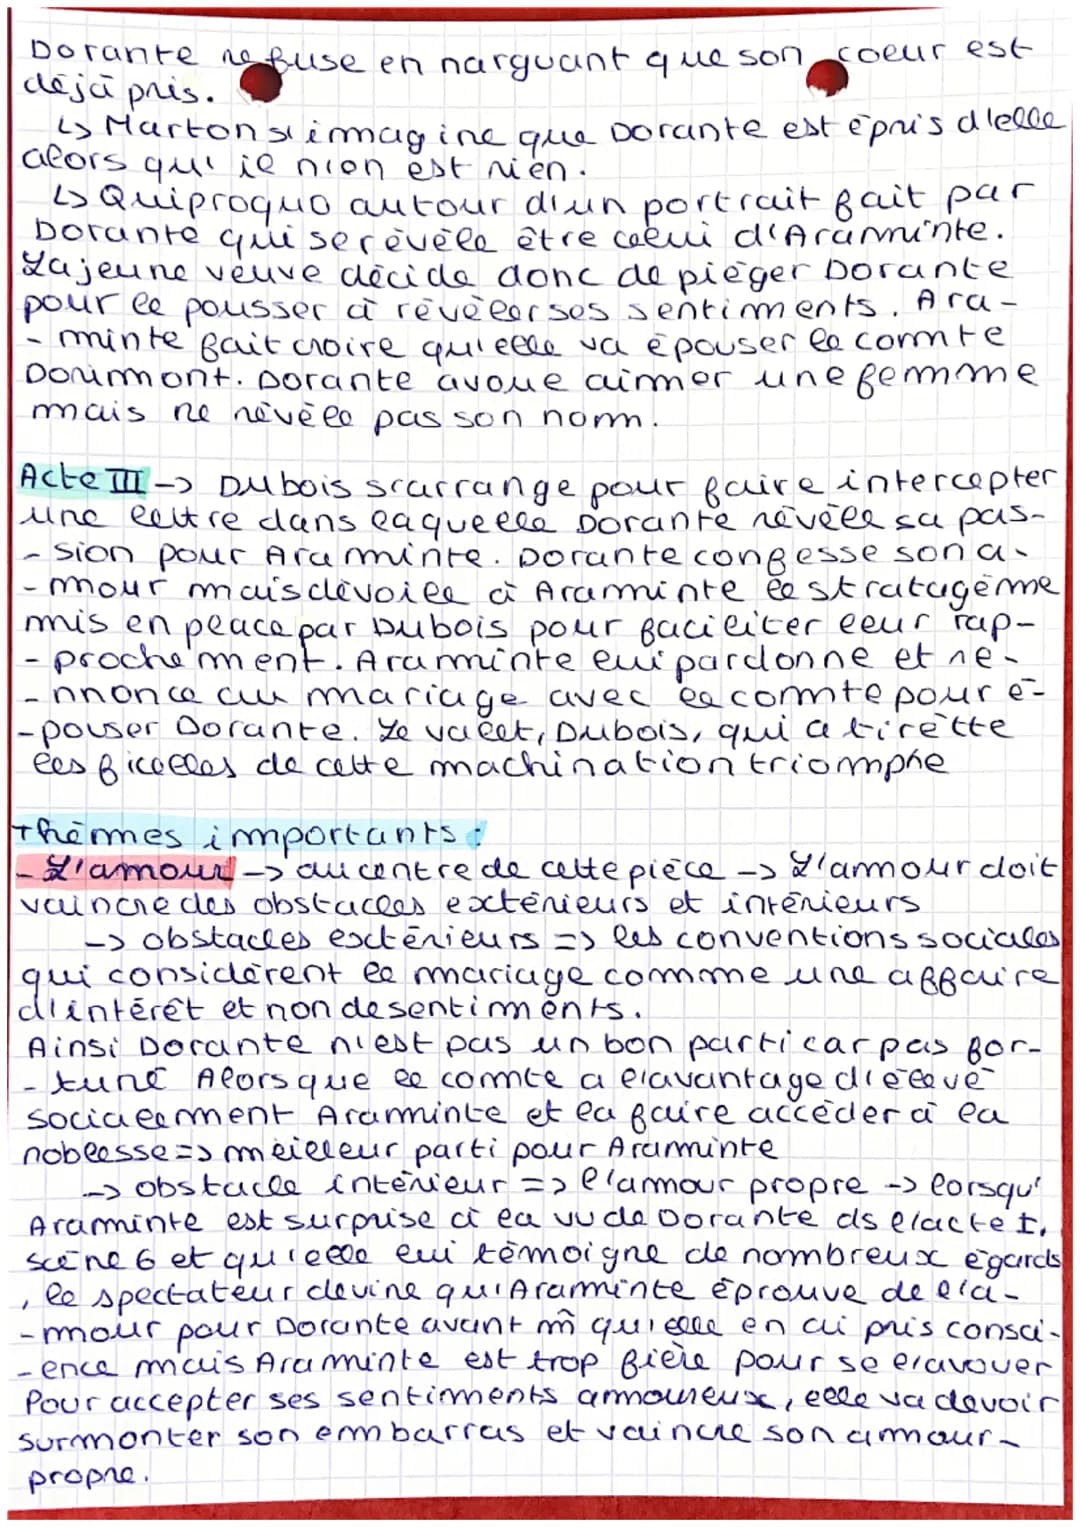 Dorante refuse en narguant que son coeur est
déjà pris.
↳ Marton s'imagine que Dorante est épris d'elle
alors qu'il n'en est rien.
↳ Quiproquo autour d'un portrait fait par
Dorante qui se révèle être celui d'Araminte.
La jeune veuve décide donc de piéger Dorante
pour le pousser à révéler ses sentiments. Ara-
-minte fait croire qu'elle va épouser le comte
Dorimont. Dorante avoue aimer une femme
mais ne révèle pas son nom.
Acte III -> Dubois s'arrange pour faire intercepter
une lettre dans laquelle Dorante révèle sa pas-
-sion pour Araminte. Dorante confesse son a-
-mour mais dévoile à Araminte le stratagème
mis en place par Dubois pour faciliter leur rap-
-prochement. Araminte lui pardonne et re-
-nnonce au mariage avec le comte pour é-
-pouser Dorante. Le valet, Dubois, qui a tirette
les ficelles de cette machination triomphe
Thèmes importants :
- L'amour -> au centre de cette pièce -> L'amour doit
vaincre des obstacles extérieurs et intérieurs
-> obstacles extérieurs => les conventions sociales
qui considèrent le mariage comme une affaire
d'intérêt et non de sentiments.
Ainsi Dorante n'est pas un bon parti car pas for-
-tuné Alors que le comte a l'avantage d'élevé
socialement Araminte et la faire accéder à la
noblesse => meilleur parti pour Araminte
-> obstacle intérieur => l'amour propre -> lorsqu'
Araminte est surprise à la vu de Dorante ds l'acte I,
scène 6 et qu'elle lui témoigne de nombreux égards
, le spectateur devine qu'Araminte éprouve de l'a-
-mour pour Dorante avant m̂ qu'elle en ai pris consci-
-ence mais Araminte est trop fière pour se l'avouer
Pour accepter ses sentiments amoureux, elle va devoir
surmonter son embarras et vaincre son amour-
propre.